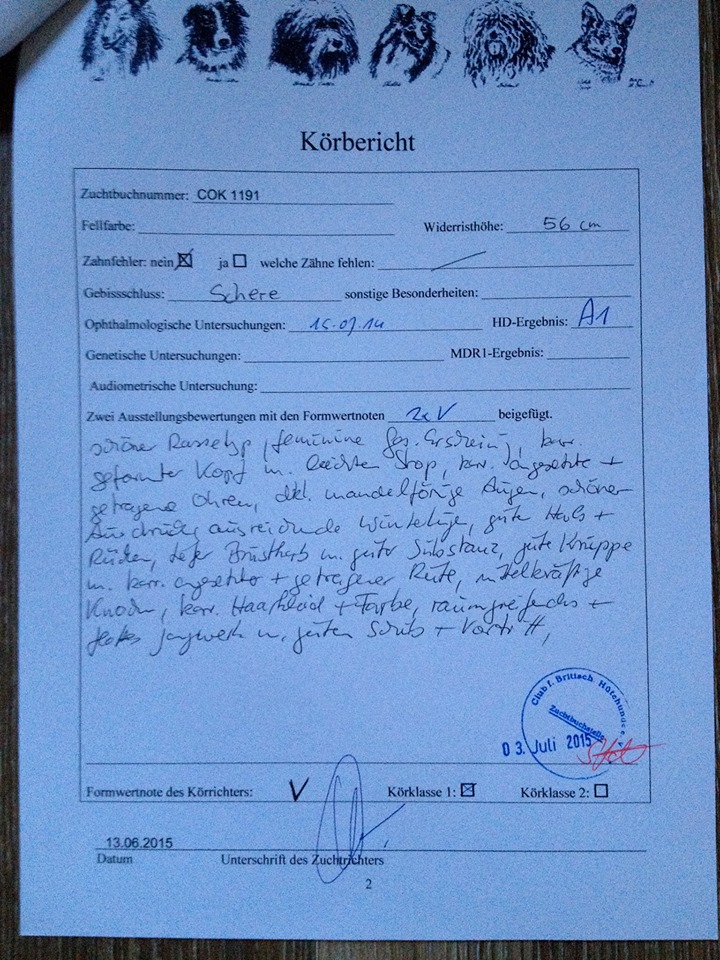 Körbericht
Zuchtbuchnummer: COK 1191
Fellfarbe: Widerristhöhe: 56 cm
Zahnfehler: nein ja welche Zähne fehlen:
Gebissschluss: Schere sonstige Besonderheiten:
Ophthalmologische Untersuchungen: 15.07.14 HD-Ergebnis: A1
Genetische Untersuchungen: MDR1-Ergebnis:
Audiometrische Untersuchung:
Zwei Ausstellungsbewertungen mit den Formwertnoten 2x V beigefügt.
schöner Rassetyp, feminine Ges. Erscheing, korr.
geformter Kopf m. leichten Stop, korr. angesetzte +
getragene Ohren, dkl. mandelförige Augen, schöner
Ausdruck, ausreichende Winkelge, gute Hals +
Rücken, tiefer Brustkorb m. guter Substanz, gute Kruppe
m. korr. angesetzter + getragener Rute, mittelkräftige
Knochen, korr. Haarkleid + Farbe, raumgreifendes +
flottes Gangwerk m. guten Schub + Vortritt,
Club f. Britisch. Hütehunde e.
Zuchtbuchstelle
03. Juli 2015
Formwertnote des Körrichters: V Körklasse 1: Körklasse 2:
13.06.2015
Datum Unterschrift des Zuchtrichters
2